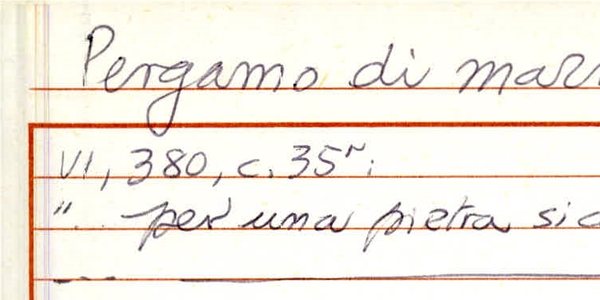 Pergamo di mar
VI, 380, c. 35r;
".. per una pietra sic